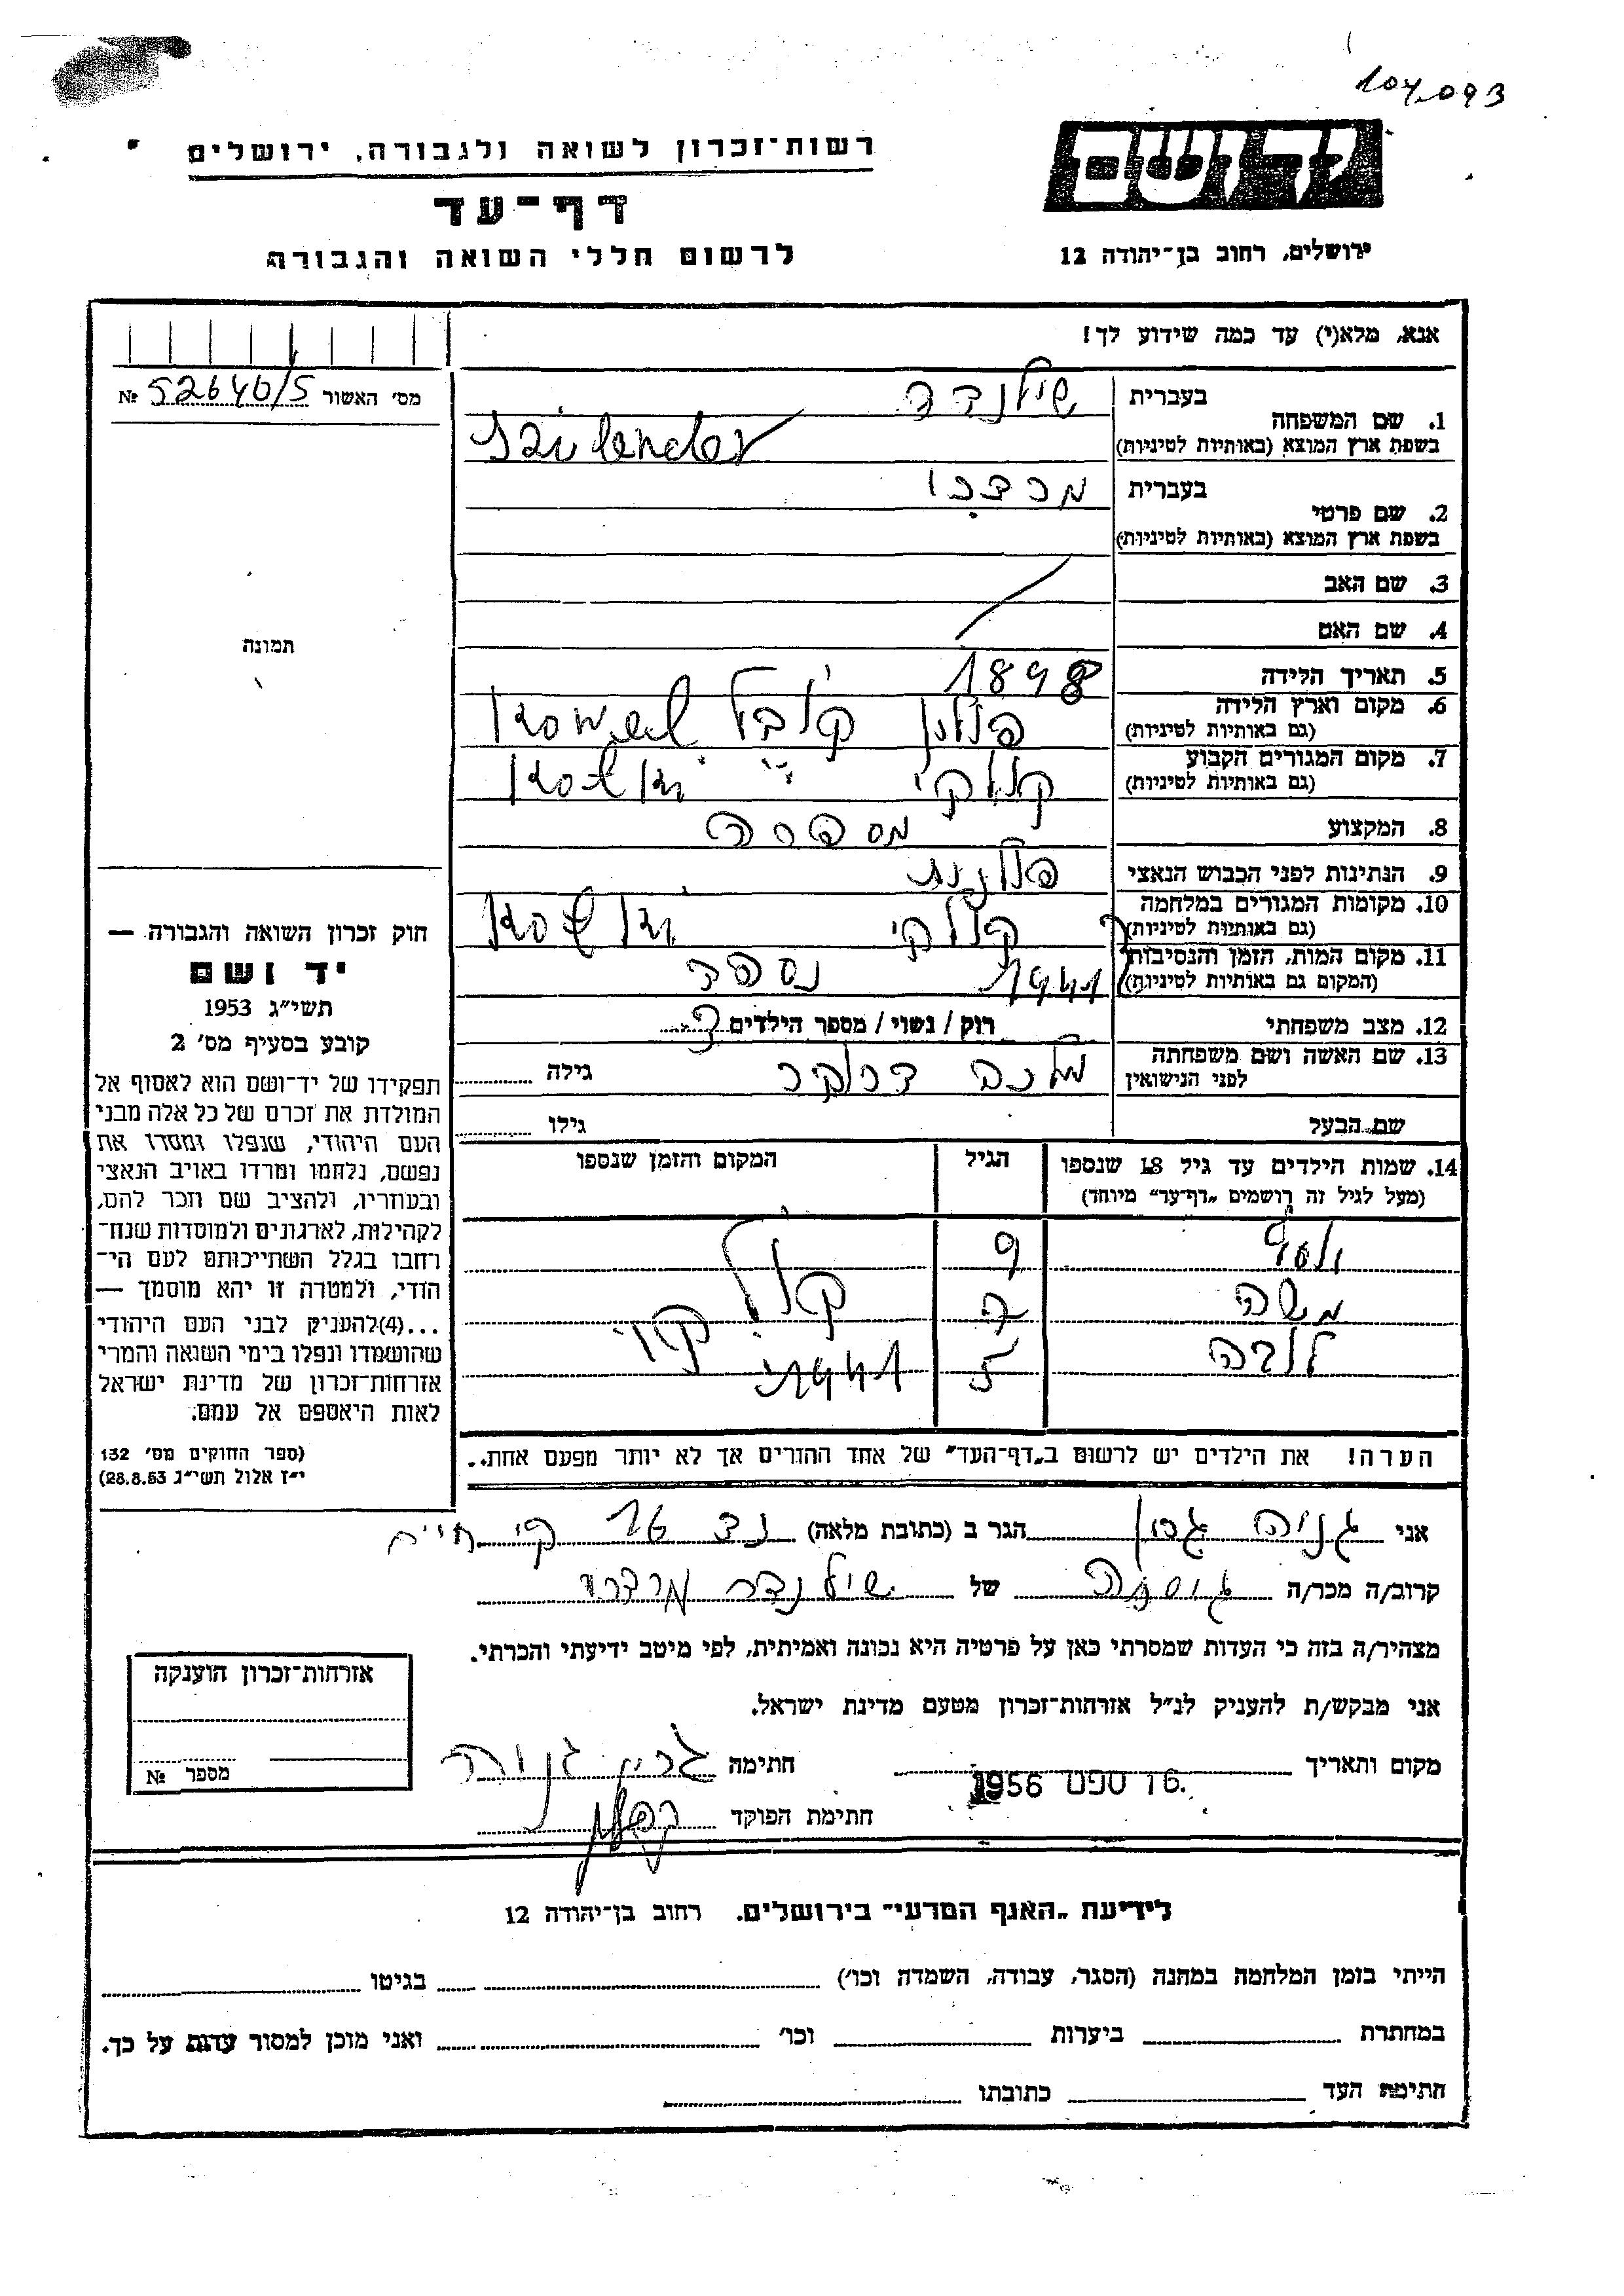 104.093
רשות־זכרון לשואה ולגבורה, ירושלים
יד ושם
דף־עד
לרשום חללי השואה והגבורה
ירושלים, רחוב בן־יהודה 12
אנא, מלא(י) עד כמה שידוע לך!
מס׳ האשור № 52640/5
1. שם המשפחה
בעברית שילנדר
בשפת ארץ המוצא (באותיות לטיניות)
2. שם פרטי
בעברית מרדכי
בשפת ארץ המוצא (באותיות לטיניות)
3. שם האב
4. שם האם
תמונה
5. תאריך הלידה 1898
6. מקום וארץ הלידה פולין קובל
(גם באותיות לטיניות)
7. מקום המגורים הקבוע קולקי
(גם באותיות לטיניות)
8. המקצוע מספרה
9. הנתינות לפני הכבוש הנאצי פולנית
10. מקומות המגורים במלחמה קולקי
(גם באותיות לטיניות)
11. מקום המות, הזמן והנסיבות 1941 נספה
(המקום גם באותיות לטיניות)
12. מצב משפחתי רוק / נשוי / מספר הילדים
13. שם האשה ושם משפחתה
לפני הנישואין גילה
שם הבעל גילו
14. שמות הילדים עד גיל 18 שנספו הגיל המקום והזמן שנספו
(מעל לגיל זה רושמים „דף־עד״ מיוחד)
יוסף 9 קולקי
משה 7
לובה 5 1941
הערה! את הילדים יש לרשום ב„דף־העד״ של אחד ההורים אך לא יותר מפעם אחת.
חוק זכרון השואה והגבורה —
יד ושם
תשי״ג 1953
קובע בסעיף מס׳ 2
תפקידו של יד־ושם הוא לאסוף אל
המולדת את זכרם של כל אלה מבני
העם היהודי, שנפלו ומסרו את
נפשם, נלחמו ומרדו באויב הנאצי
ובעוזריו, ולהציב שם וזכר להם,
לקהילות, לארגונים ולמוסדות שנח־
רחבו בגלל השתייכותם לעם הי־
הודי, ולמטרה זו יהא מוסמך —
...(4)להעניק לבני העם היהודי
שהושמדו ונפלו בימי השואה והמרי
אזרחות־זכרון של מדינת ישראל
לאות היאספם אל עמם.
(ספר החוקים מס׳ 132
י״ז אלול תשי״ג 28.8.53)
אני גניה הגר ב (כתובת מלאה) 16 ק׳ חיים
קרוב/ה מכר/ה גיסה של שילנדר מרדכי
מצהיר/ה בזה כי העדות שמסרתי כאן על פרטיה היא נכונה ואמיתית, לפי מיטב ידיעתי והכרתי.
אני מבקש/ת להעניק לנ״ל אזרחות־זכרון מטעם מדינת ישראל.
מקום ותאריך ספט 1956 חתימה
חתימת הפוקד
אזרחות־זכרון הוענקה
מספר №
לידיעת „האגף המדעי״ בירושלים, רחוב בן־יהודה 12
הייתי בזמן המלחמה במחנה (הסגר, עבודה, השמדה וכו׳) בגיטו
במחתרת ביערות וכו׳ ואני מוכן למסור עדות על כך.
חתימת העד כתובתו